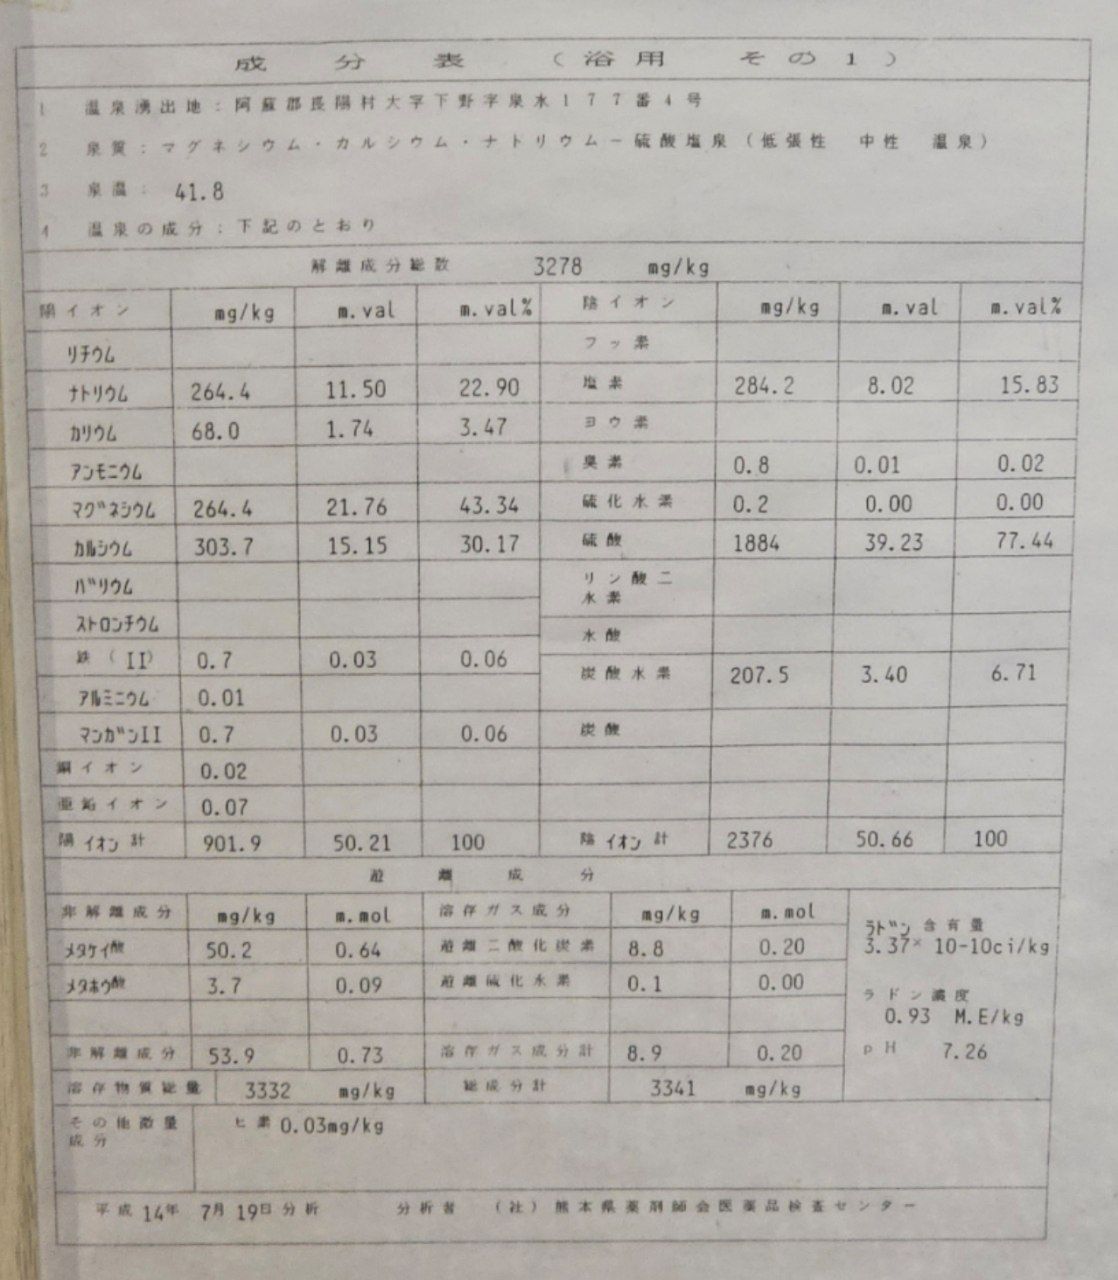 成分表（浴用 その1）
1 温泉湧出地：阿蘇郡長陽村大字下野字泉水177番4号
2 泉質：マグネシウム・カルシウム・ナトリウム－硫酸塩泉（低張性 中性 温泉）
3 泉温： 41.8
4 温泉の成分：下記のとおり
解離成分総数 3278 mg/kg
陽イオン mg/kg m.val m.val% 陰イオン mg/kg m.val m.val%
ﾘﾁｳﾑ フッ素
ﾅﾄﾘｳﾑ 264.4 11.50 22.90 塩素 284.2 8.02 15.83
ｶﾘｳﾑ 68.0 1.74 3.47 ヨウ素
ｱﾝﾓﾆｳﾑ 臭素 0.8 0.01 0.02
ﾏｸﾞﾈｼｳﾑ 264.4 21.76 43.34 硫化水素 0.2 0.00 0.00
ｶﾙｼｳﾑ 303.7 15.15 30.17 硫酸 1884 39.23 77.44
ﾊﾞﾘｳﾑ リン酸二
水素
ｽﾄﾛﾝﾁｳﾑ 水酸
鉄（II） 0.7 0.03 0.06 炭酸水素 207.5 3.40 6.71
ｱﾙﾐﾆｳﾑ 0.01
ﾏﾝｶﾞﾝII 0.7 0.03 0.06 炭酸
銅イオン 0.02
亜鉛イオン 0.07
陽ｲｵﾝ計 901.9 50.21 100 陰ｲｵﾝ計 2376 50.66 100
遊離成分
非解離成分 mg/kg m.mol 溶存ガス成分 mg/kg m.mol
ﾒﾀｹｲ酸 50.2 0.64 遊離二酸化炭素 8.8 0.20
ﾒﾀﾎｳ酸 3.7 0.09 遊離硫化水素 0.1 0.00
非解離成分 53.9 0.73 溶存ガス成分計 8.9 0.20
ﾗﾄﾞﾝ含有量
3.37× 10-10ci/kg
ラドン濃度
0.93 M.E/kg
pH 7.26
溶存物質総量 3332 mg/kg 総成分計 3341 mg/kg
その他微量
成分
ヒ素 0.03mg/kg
平成14年 7月19日分析 分析者 （社）熊本県薬剤師会医薬品検査センター